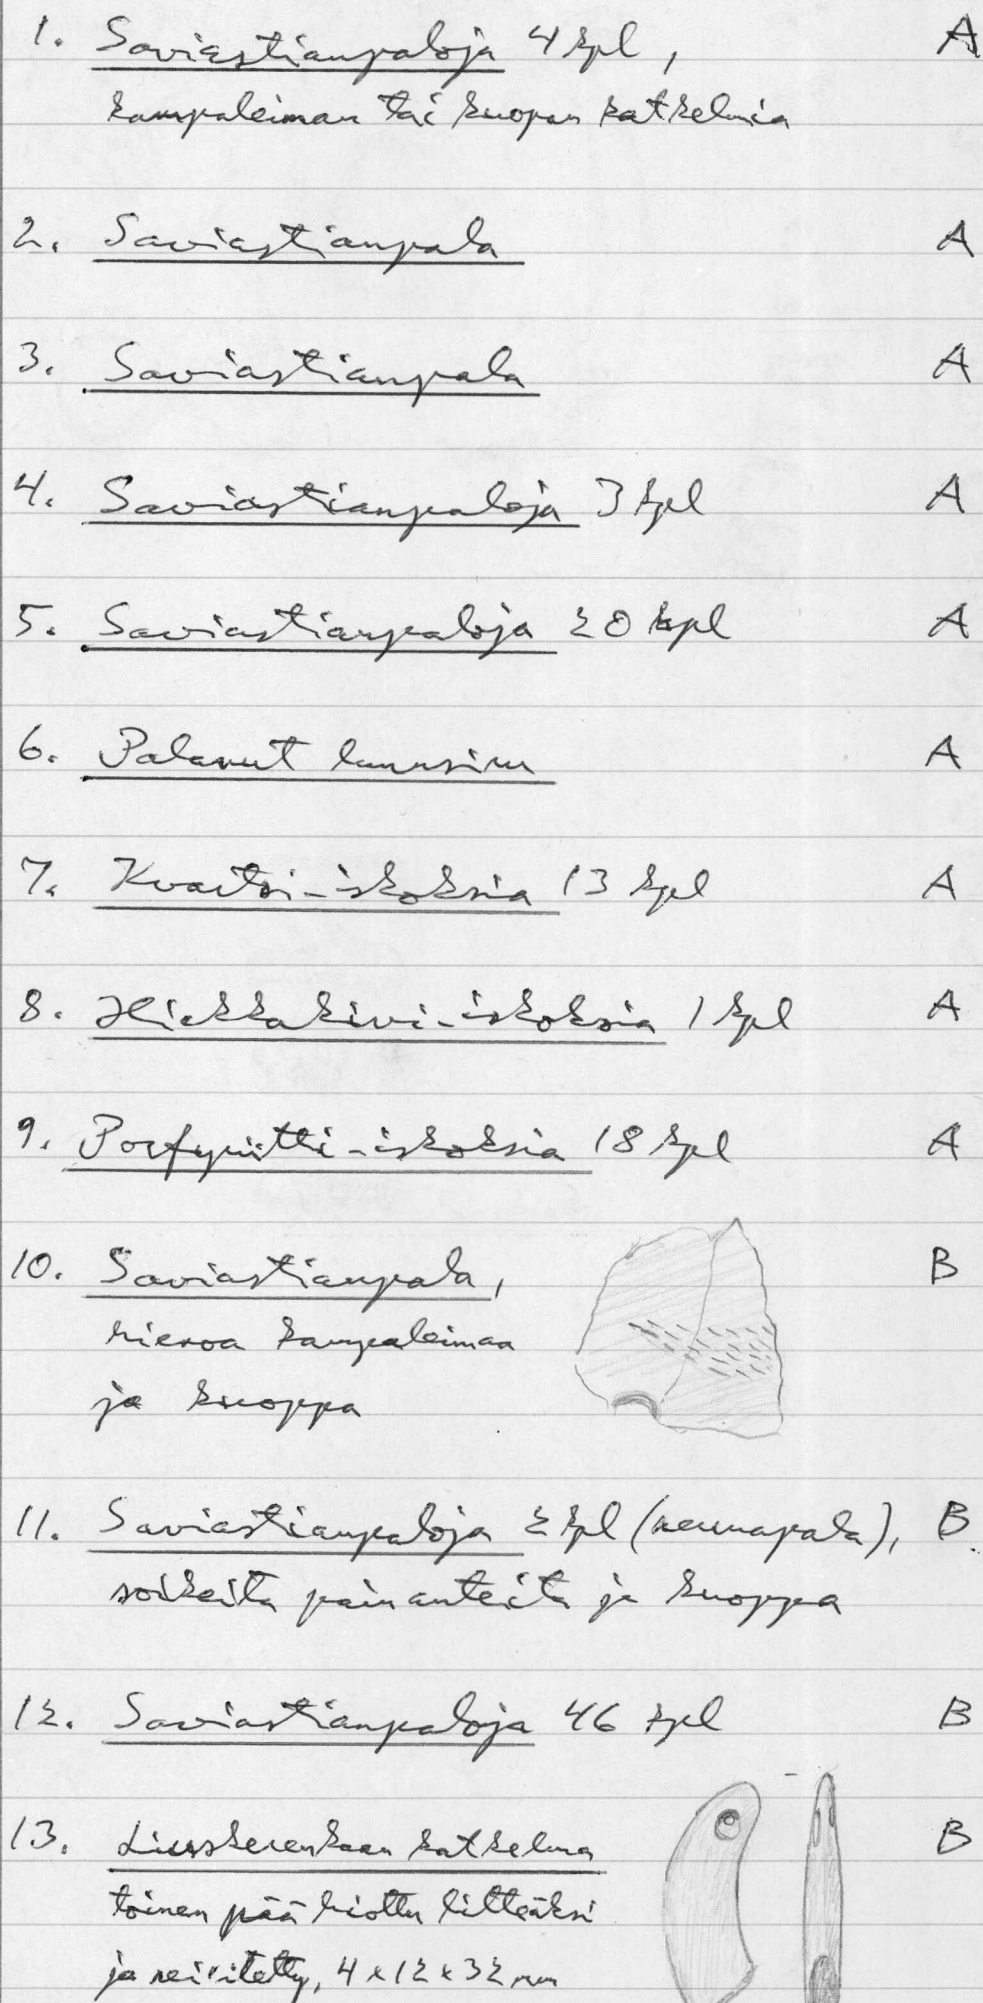 1. Saviastianpaloja 4 kpl, A
kampaleiman tai kuopan katkelmia
2. Saviastianpala A
3. Saviastianpala A
4. Saviastianpaloja 3 kpl A
5. Saviastianpaloja 20 kpl A
6. Palanut luunsiru A
7. Kvartsi-iskoksia 13 kpl A
8. Hiekkakivi-iskoksia 1 kpl A
9. Porfyriitti-iskoksia 18 kpl A
10. Saviastianpala, B
hienoa kampaleimaa
ja kuoppa
11. Saviastianpaloja 2 kpl (reunapala), B
soikeita painanteita ja kuoppa
12. Saviastianpaloja 46 kpl B
13. Liuskerenkaan katkelma B
toinen pää hiottu litteäksi
ja rei'itetty, 4x12x32 mm